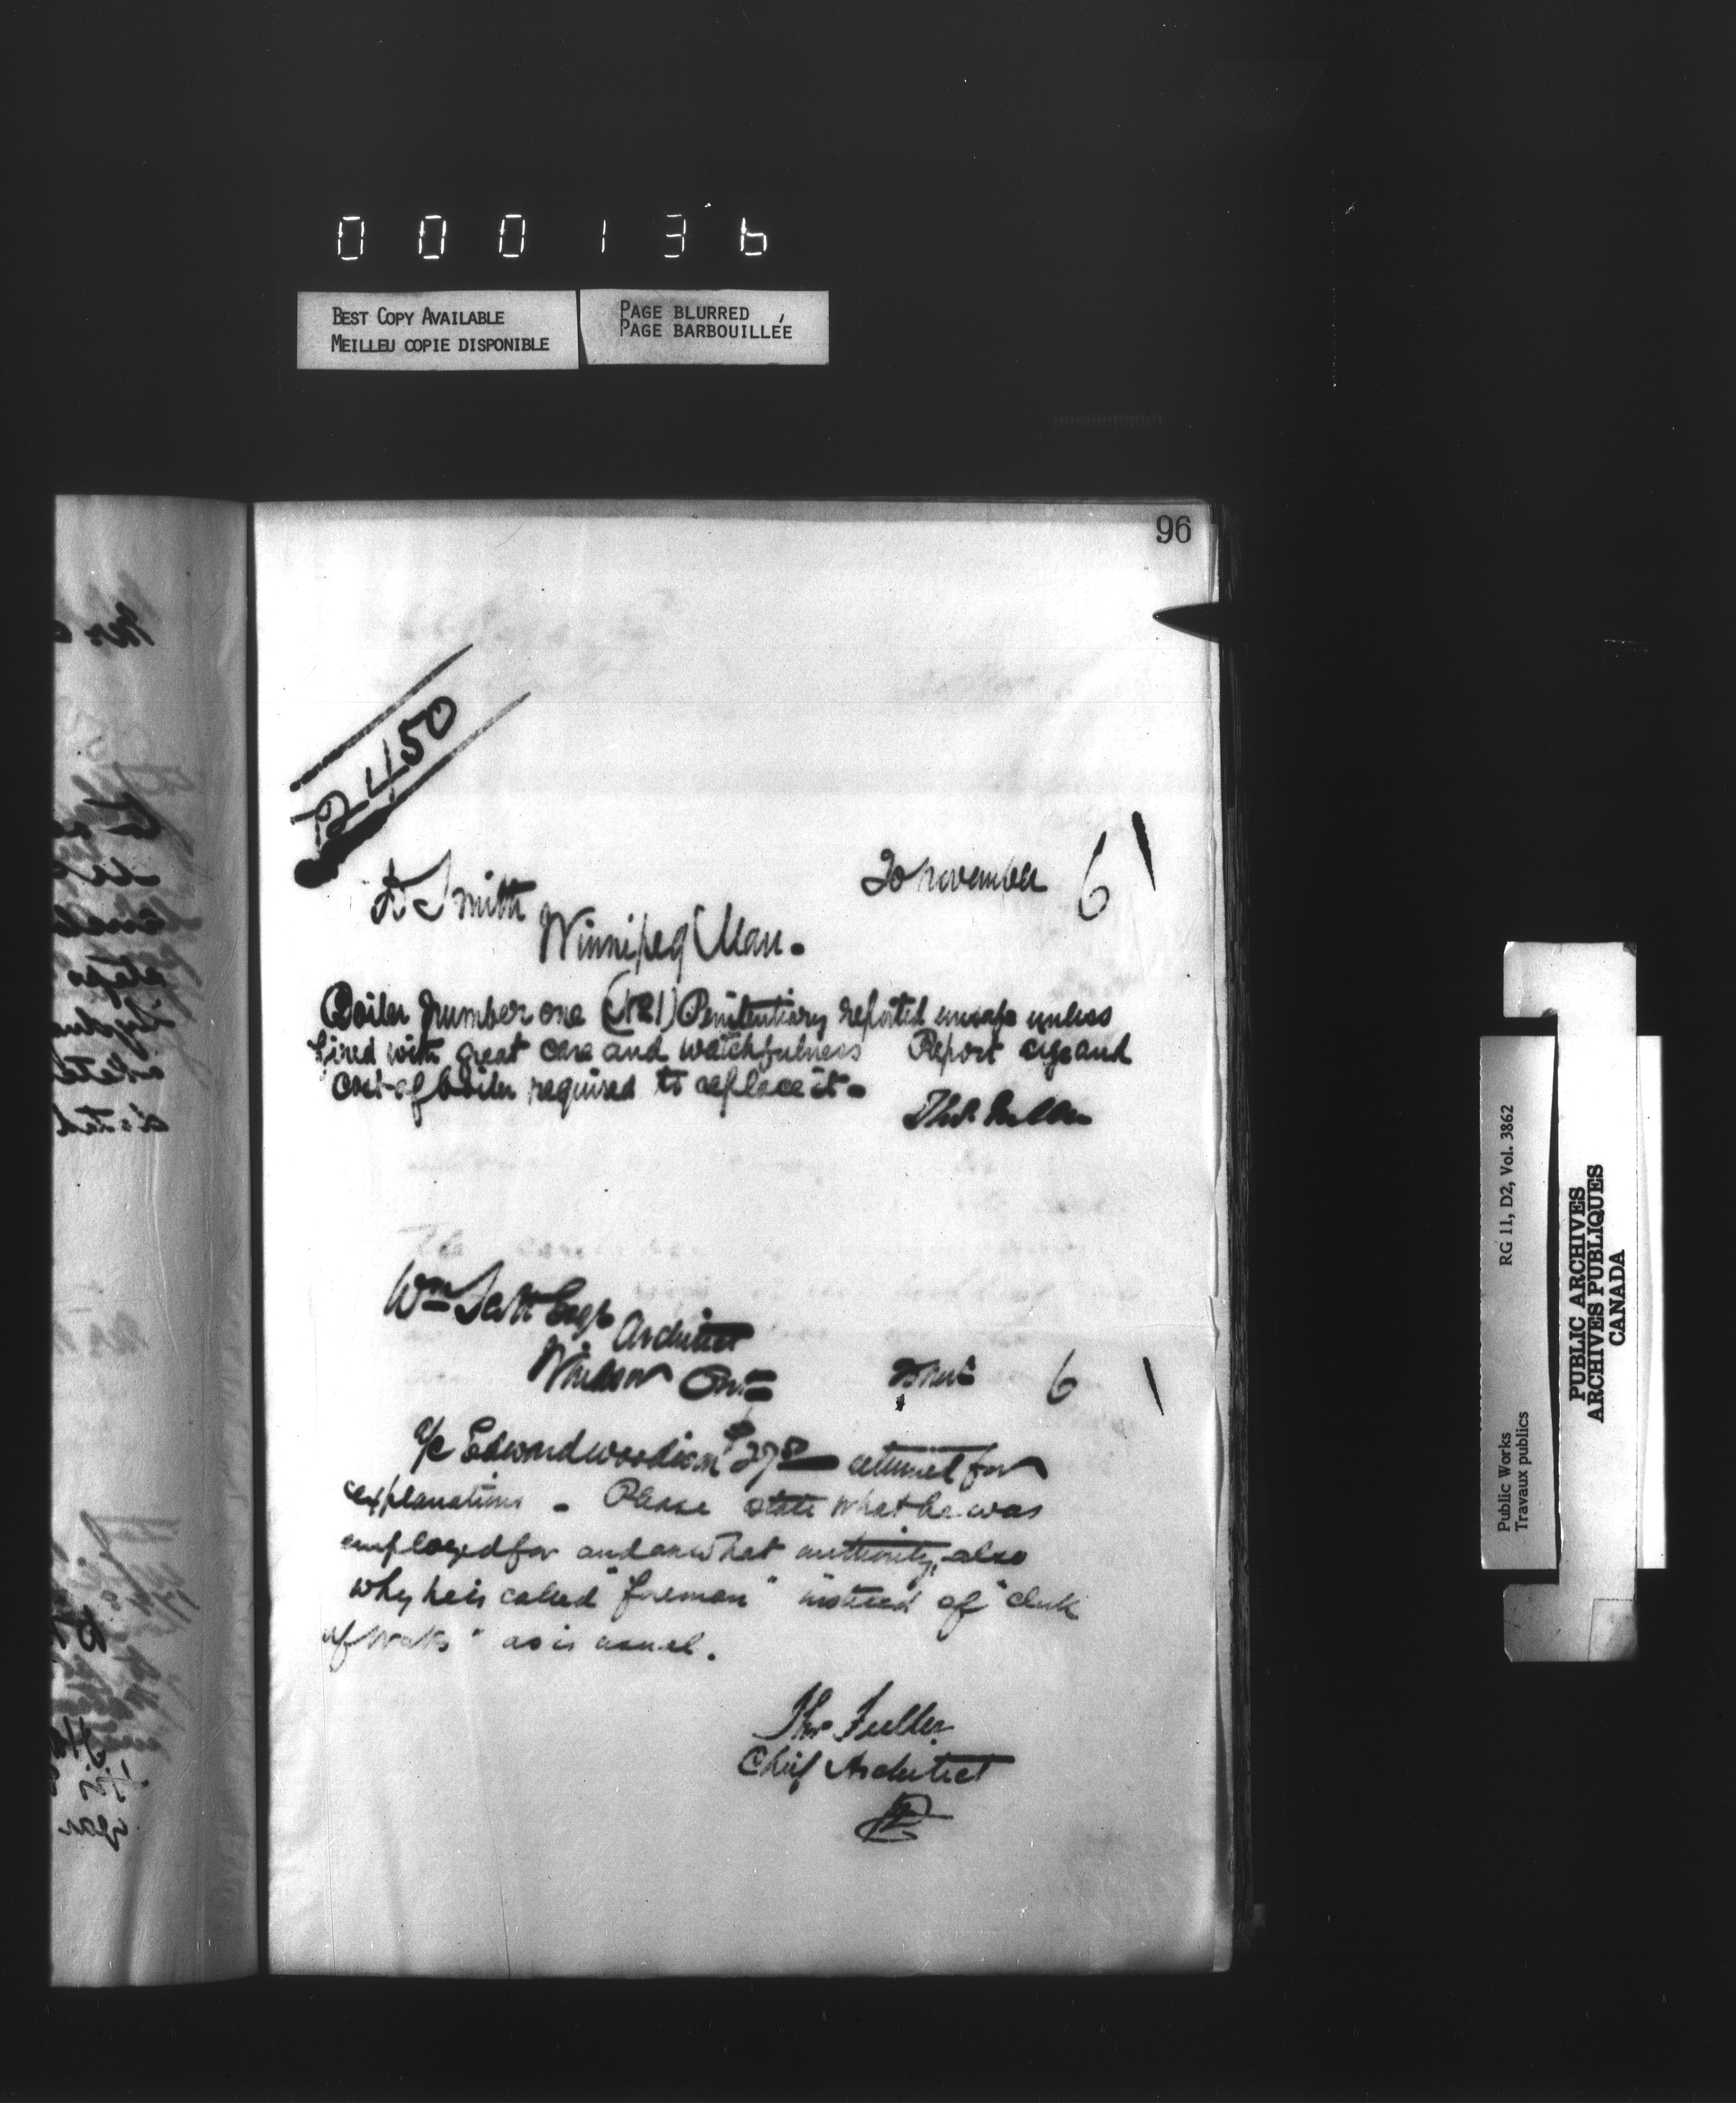 000136
BEST COPY AVAILABLE
MEILLEU COPIE DISPONIBLE
PAGE BLURRED
PAGE BARBOUILLÉE
96
2450
20 november 6
D Smith
Winnipeg Man.
Boiler number one (No 1) Penitentiary reported unsafe unless
fired with great care and watchfulness Report age and
cost of boiler required to replace it -
Thos. Fuller
Wm Scott Esqr
Architect
Windsor Ont
20 Nov 6
a/c Edward Woodison returned for
explanations - Please state what he was
employed for and on what authority, also
why he is called "foreman" instead of "clerk
of works" as is usual.
Thos Fuller
Chief Architect
Public Works
Travaux publics
RG 11, D2, Vol. 3862
PUBLIC ARCHIVES
ARCHIVES PUBLIQUES
CANADA